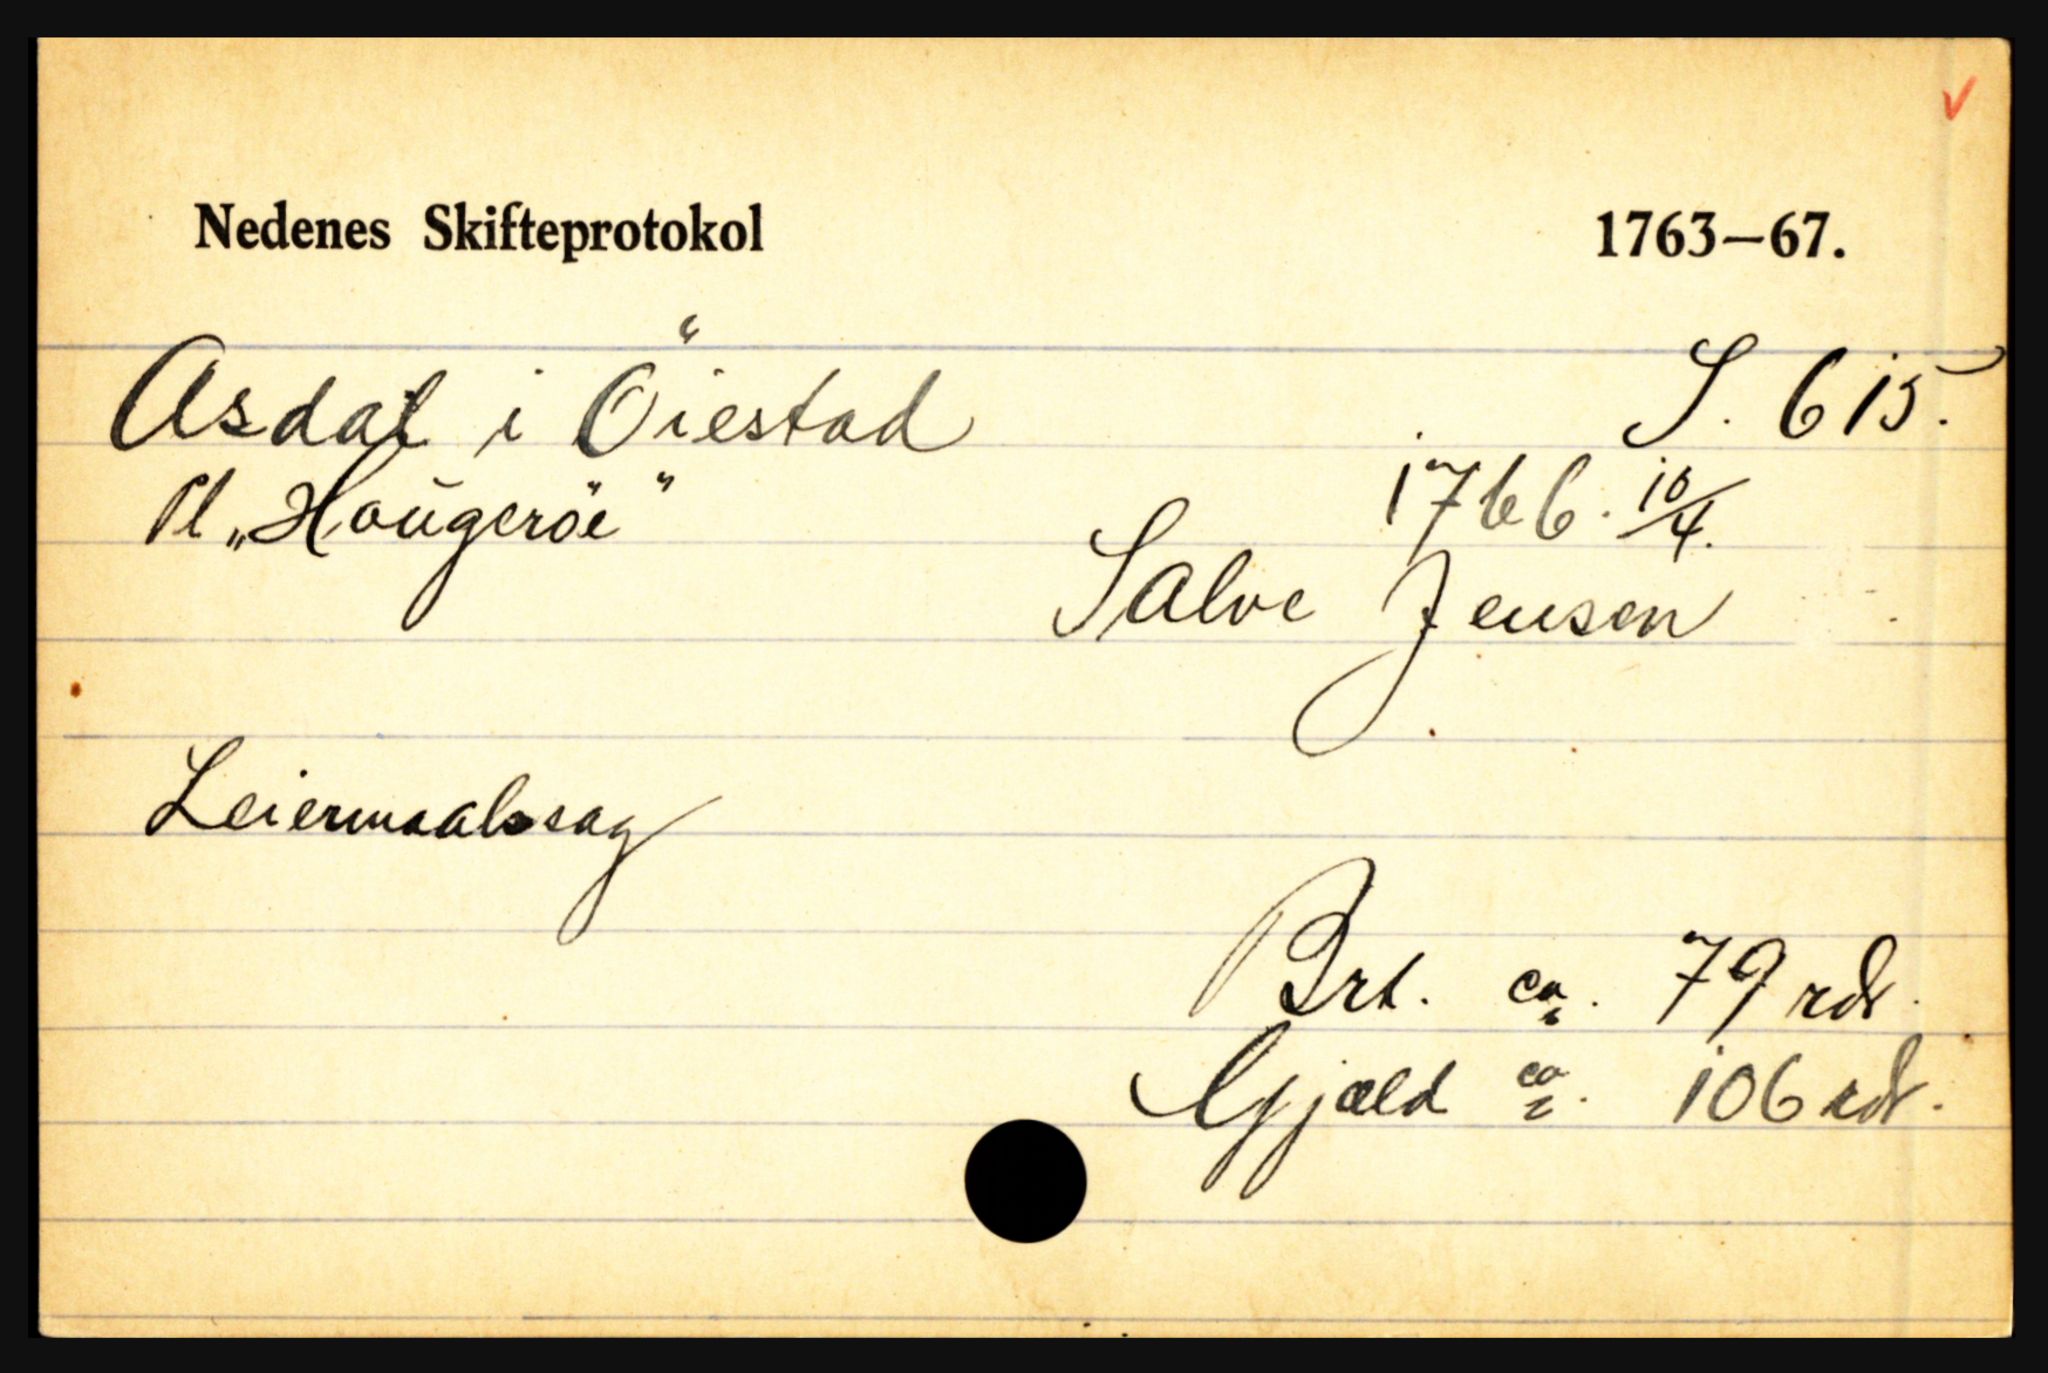 Nedenes Skifteprotokol 1763–67.
Asdal i Öiestad S. 615.
Pl „Hougeröe" 1766. 10/4.
Salve Jensen
Leiermaalssag
Brt. ca. 79 rdr.
Gjæld ca. 106 rdr.